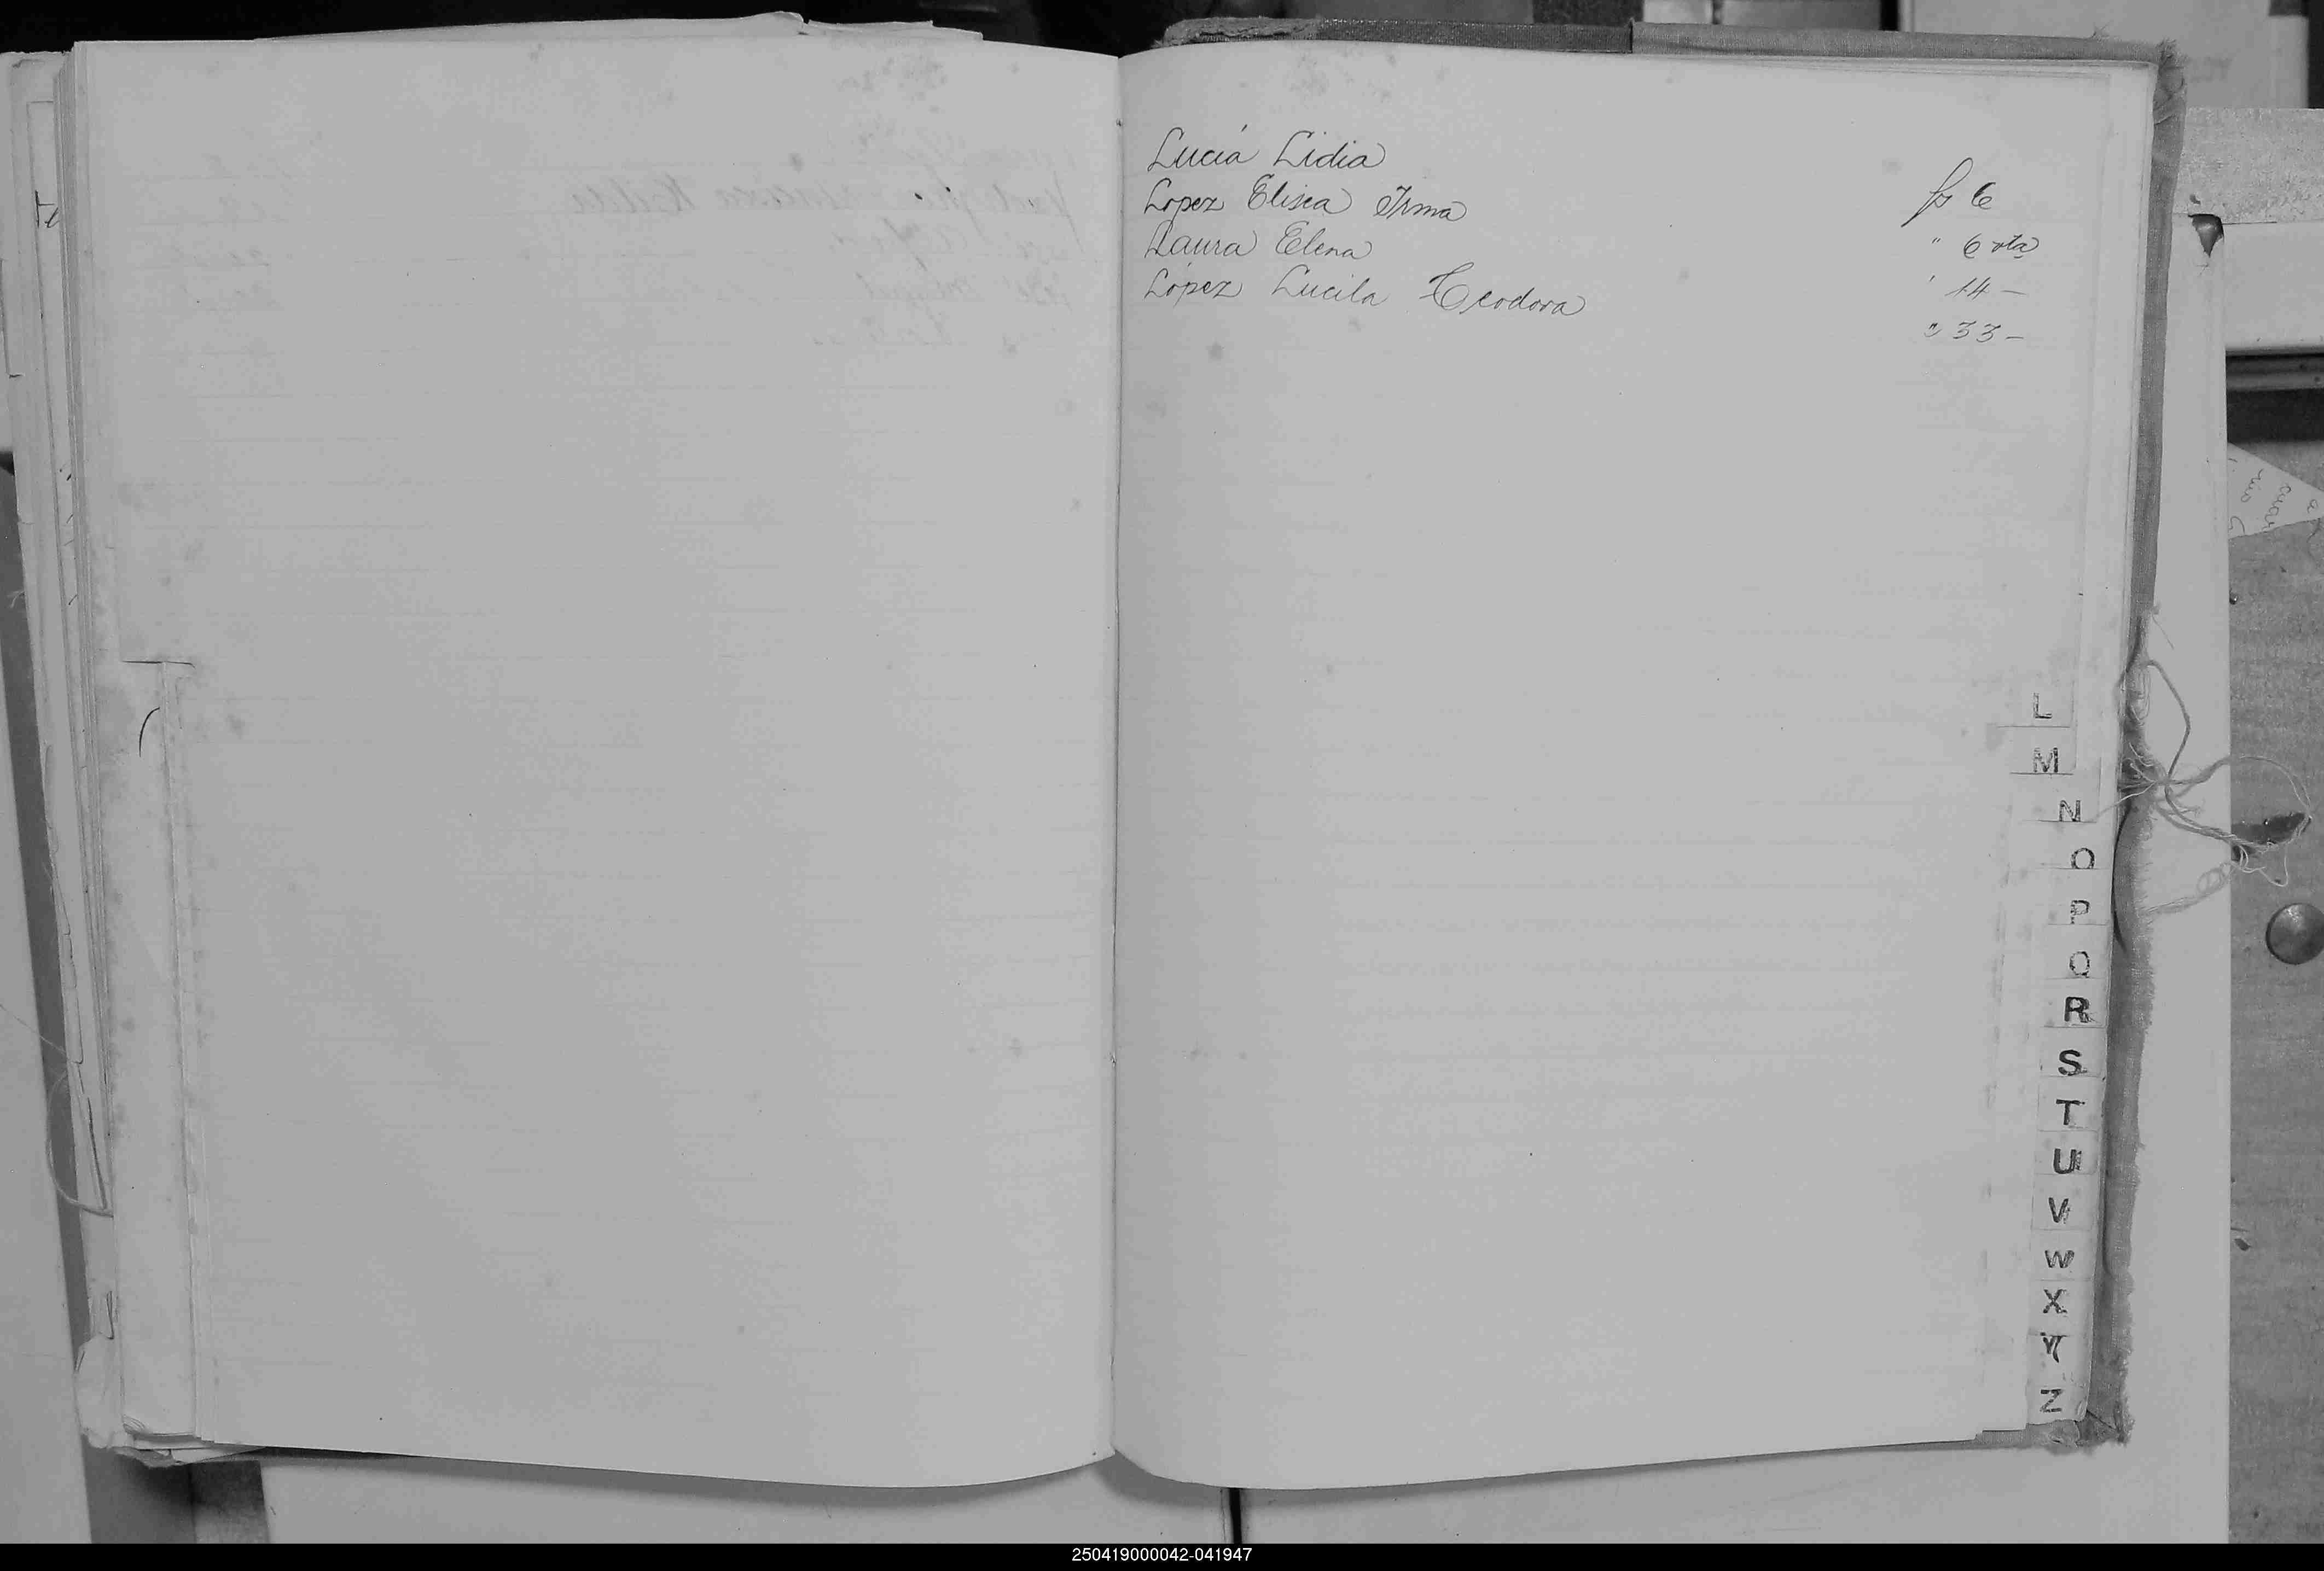 Lucía Lidia fs 6
Lopez Elisea Irma " 6 vta
Laura Elena " 14 -
López Lucila Teodora " 33 -
L
M
N
O
P
Q
R
S
T
U
V
W
X
Y
Z
250419000042-041947